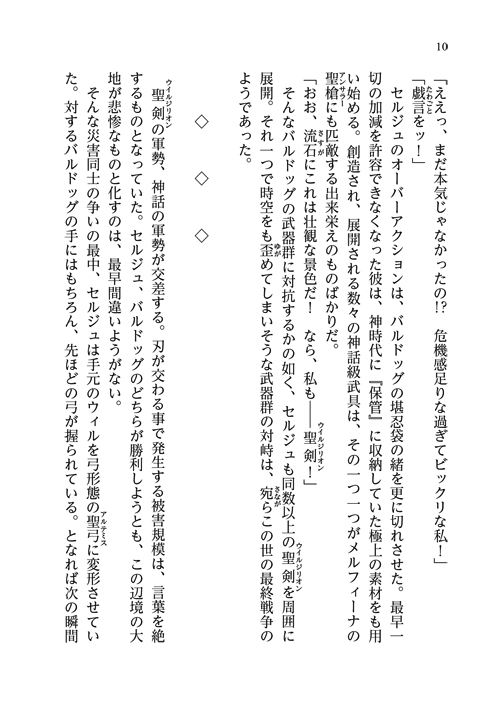 10
「ええっ、まだ本気じゃなかったの!?　危機感足りな過ぎてビックリな私！」
「戯言をッ！」
　セルジュのオーバーアクションは、バルドッグの堪忍袋の緒を更に切れさせた。最早一
切の加減を許容できなくなった彼は、神時代に『保管』に収納していた極上の素材をも用
い始める。創造され、展開される数々の神話級武具は、その一つ一つがメルフィーナの
聖槍にも匹敵する出来栄えのものばかりだ。
「おお、流石にこれは壮観な景色だ！　なら、私も――聖剣！」
　そんなバルドッグの武器群に対抗するかの如く、セルジュも同数以上の聖剣を周囲に
展開。それ一つで時空をも歪めてしまいそうな武器群の対峙は、宛らこの世の最終戦争の
ようであった。
◇　◇　◇
　聖剣の軍勢、神話の軍勢が交差する。刃が交わる事で発生する被害規模は、言葉を絶
するものとなっていた。セルジュ、バルドッグのどちらが勝利しようとも、この辺境の大
地が悲惨なものと化すのは、最早間違いようがない。
　そんな災害同士の争いの最中、セルジュは手元のウィルを弓形態の聖弓に変形させてい
た。対するバルドッグの手にはもちろん、先ほどの弓が握られている。となれば次の瞬間